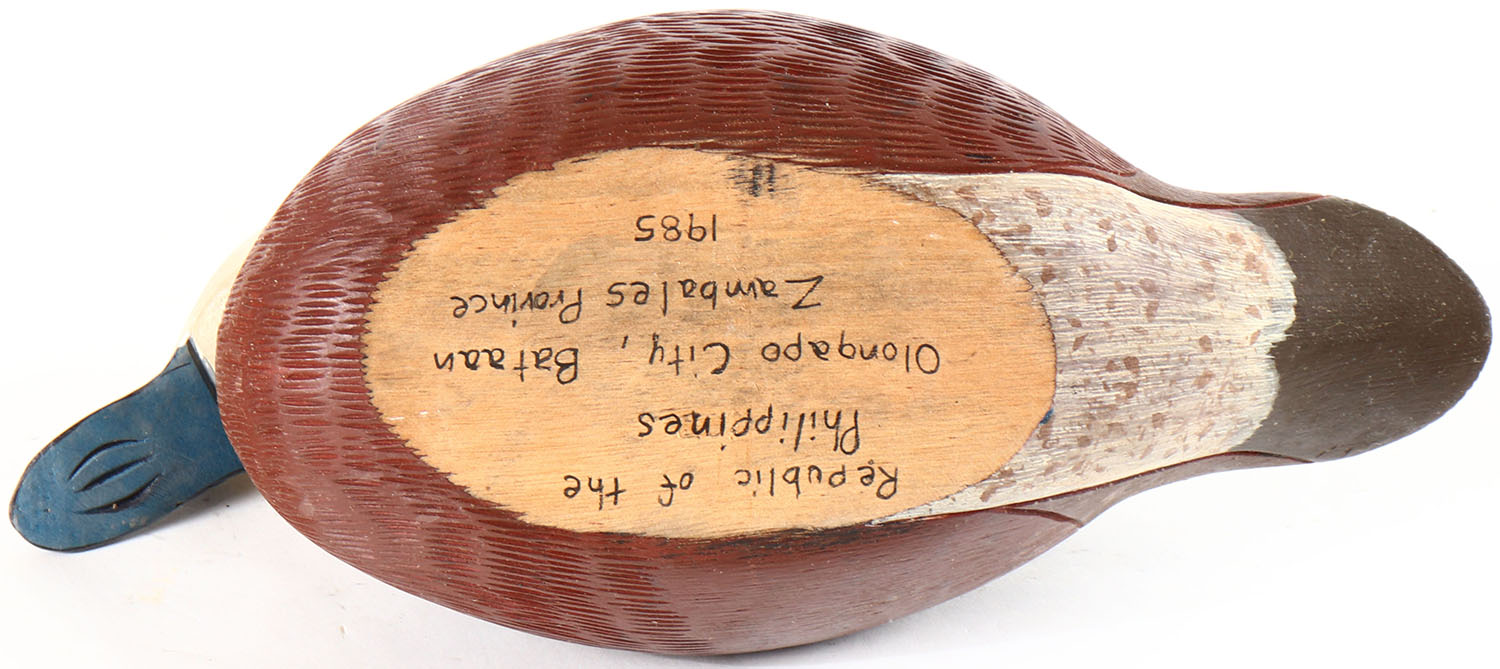 Republic of the
Philippines
Olongapo City, Bataan
Zambales Province
1985